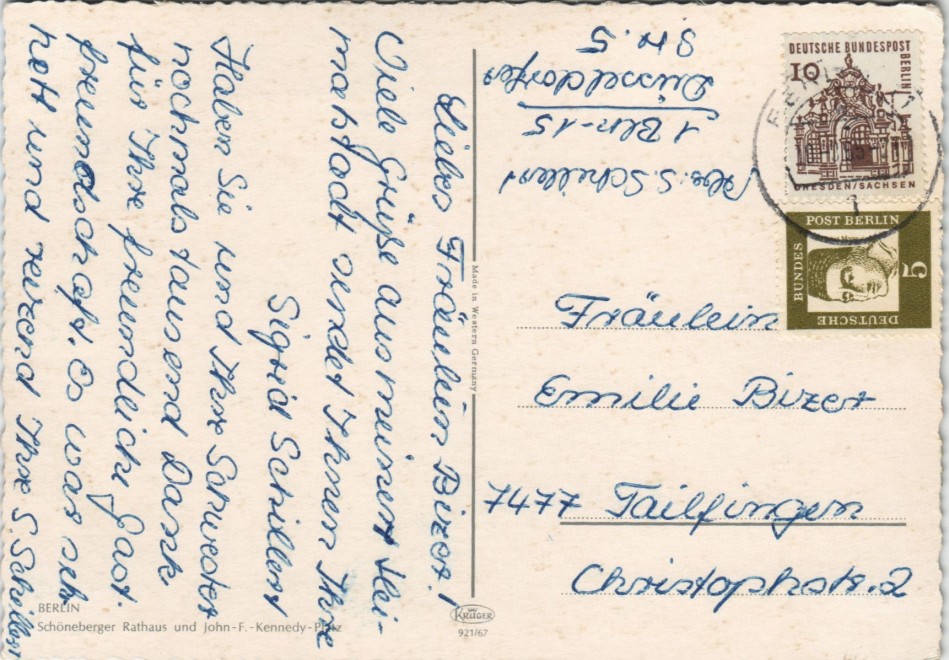 Liebes Fräulein Bizer!
Viele Grüße aus meiner Hei-
matstadt sendet Ihnen Ihre
Sigrid Schillert
Haben Sie und Ihre Schwester
nochmals tausend Dank
für Ihre freundliche Gast-
freundschaft. Es war sehr
nett und reizend Ihre S Schillert
Abs: S. Schillert
1 Bln-15
Düsseldorfer
Str. 5
DEUTSCHE BUNDESPOST
BERLIN
10
DRESDEN/SACHSEN
DEUTSCHE
BUNDES
POST BERLIN
5
Fräulein
Emilie Bizer
7477 Tailfingen
Christophstr. 2
Made in Western Germany
KRÜGER
921/67
BERLIN
Schöneberger Rathaus und John-F.-Kennedy-Platz